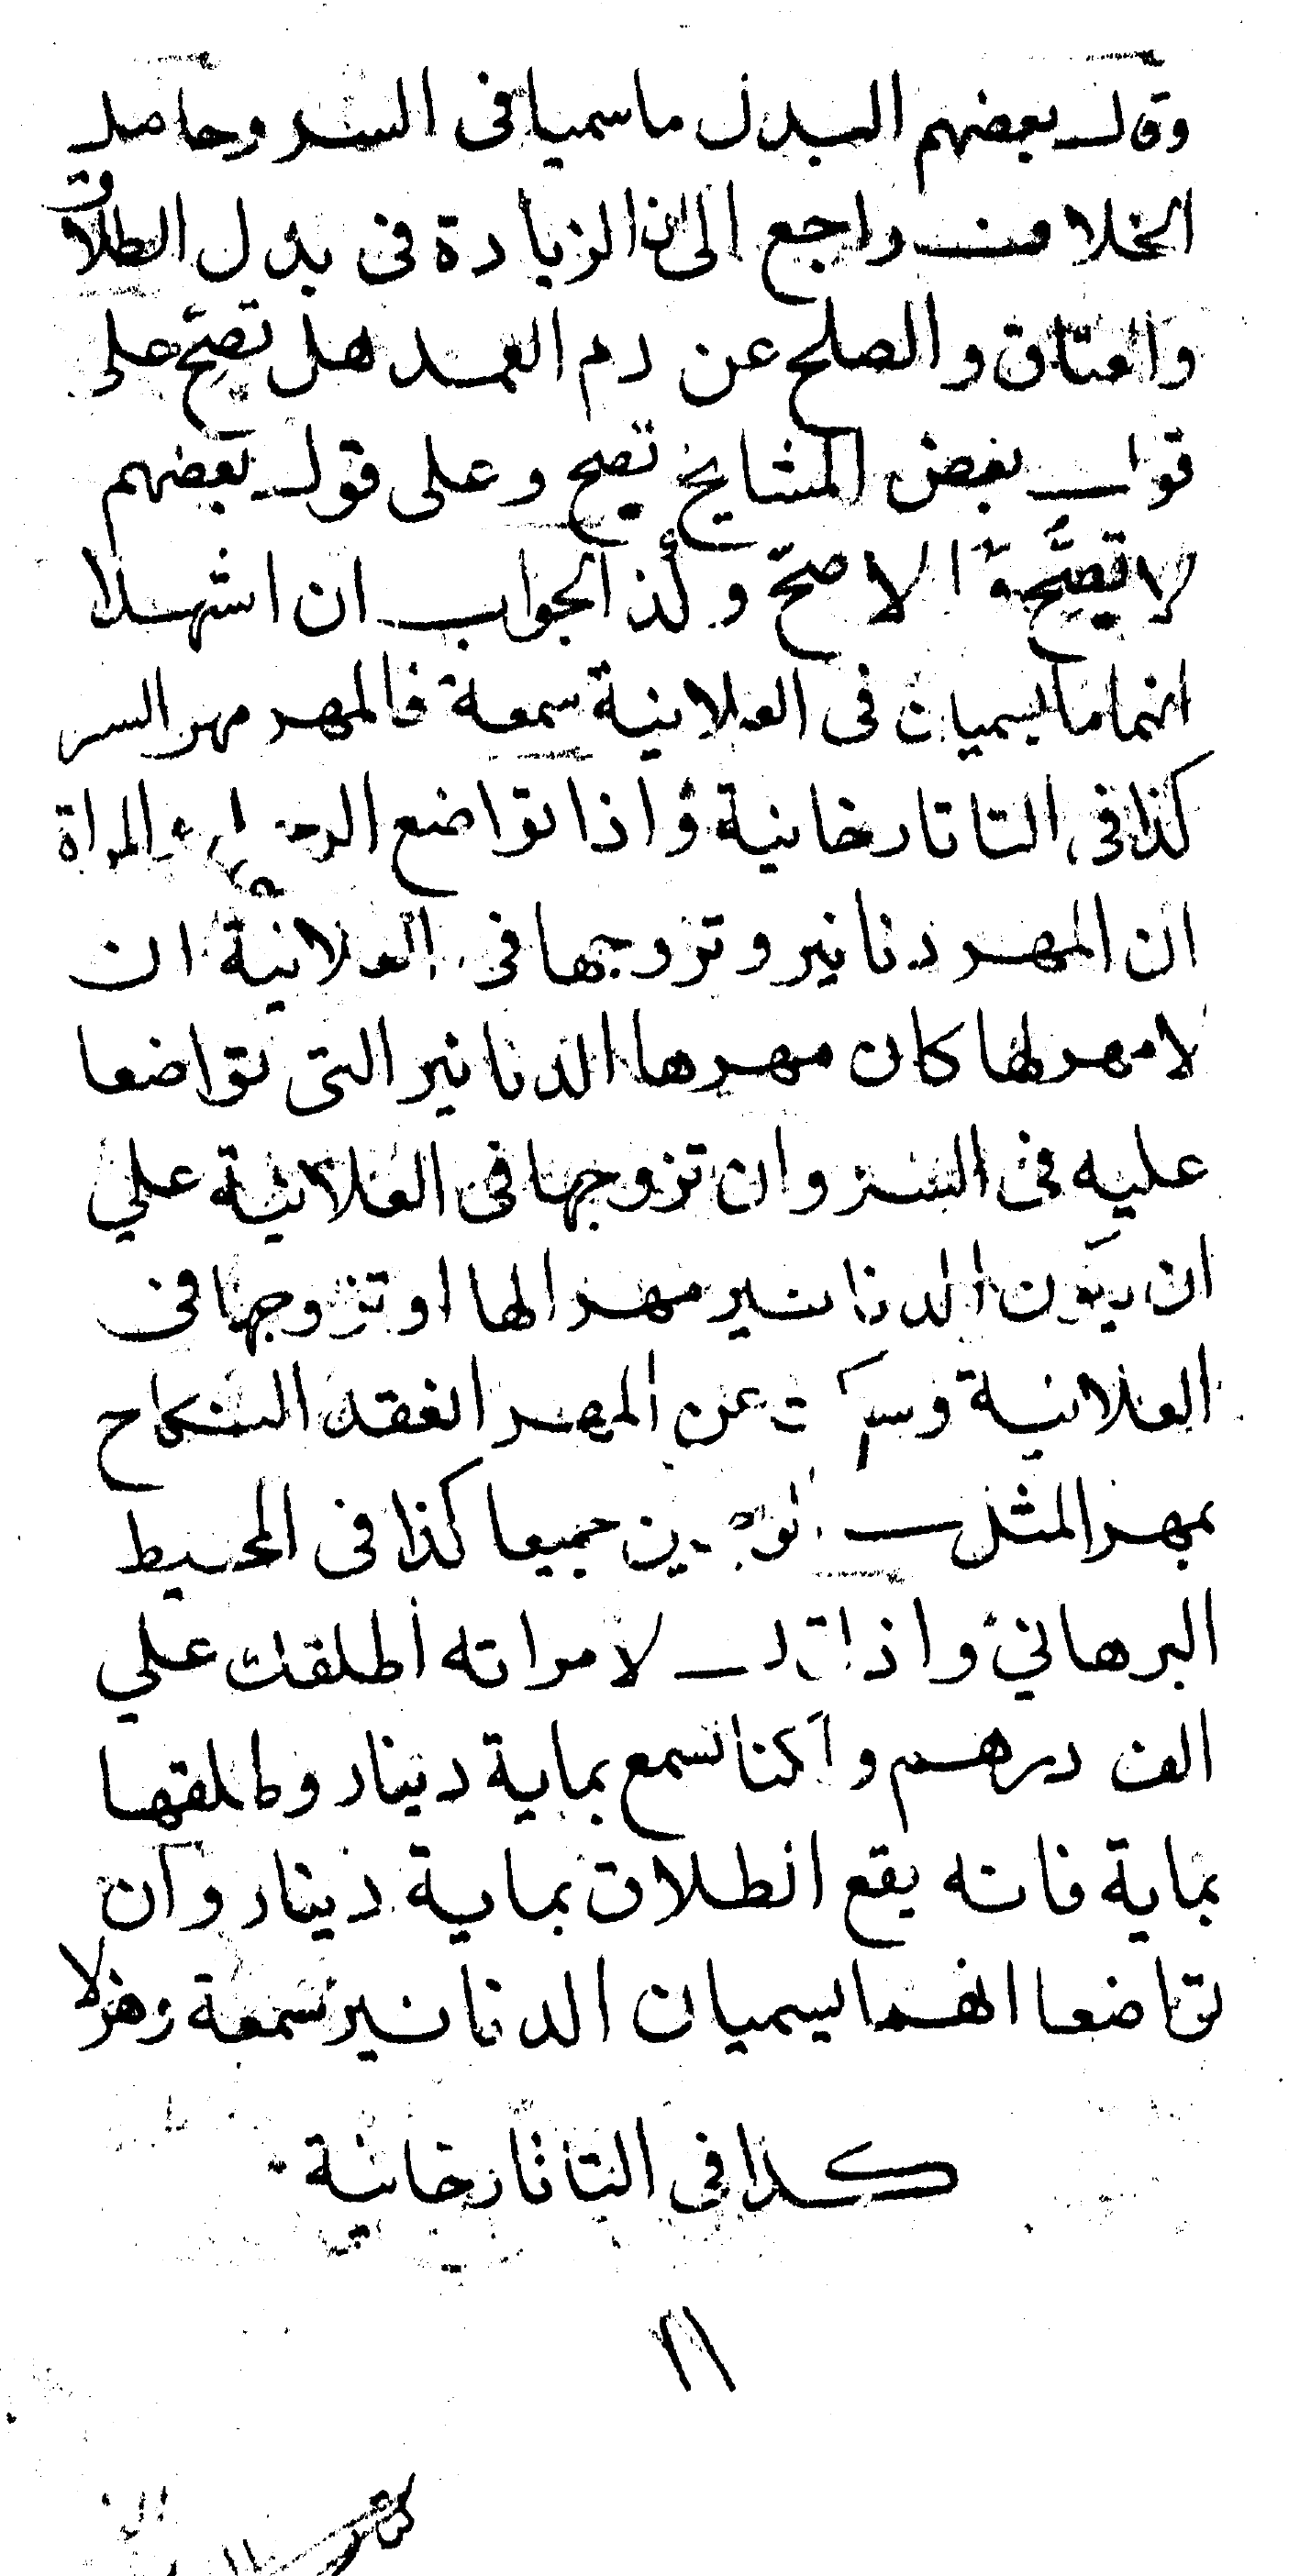 وقال بعضهم البدل ما سميا في السر وحاصل
الخلاف راجع الى ان الزيادة في بدل الطلاق
والعتاق والصلح عن دم العمد هل تصح على
قول بعض المشايخ تصح وعلى قول بعضهم
لا تصح الاصح وكذا الجواب ان اشهدا
انهما ما يسميان في العلانية سمعة فالمهر مهر السر
كذا في التاتارخانية واذا تواضع الرجل والمراة
ان المهر دنانير وتزوجها في العلانية ان
لا مهر لها كان مهرها الدنانير التي تواضعا
عليه في السر وان تزوجها في العلانية علي
ان يكون الدنانير مهرا لها او تزوجها في
العلانية وسكت عن المهر انعقد النكاح
بمهر المثل جميعا كذا في المحيط
البرهاني واذا قال لامراته اطلقك علي
الف درهم ولكنا نسمع بماية دينار وطلقها
بماية فانه يقع الطلاق بماية دينار وان
تواضعا انهما يسميان الدنانير سمعة وهزلا
كذا في التاتارخانية